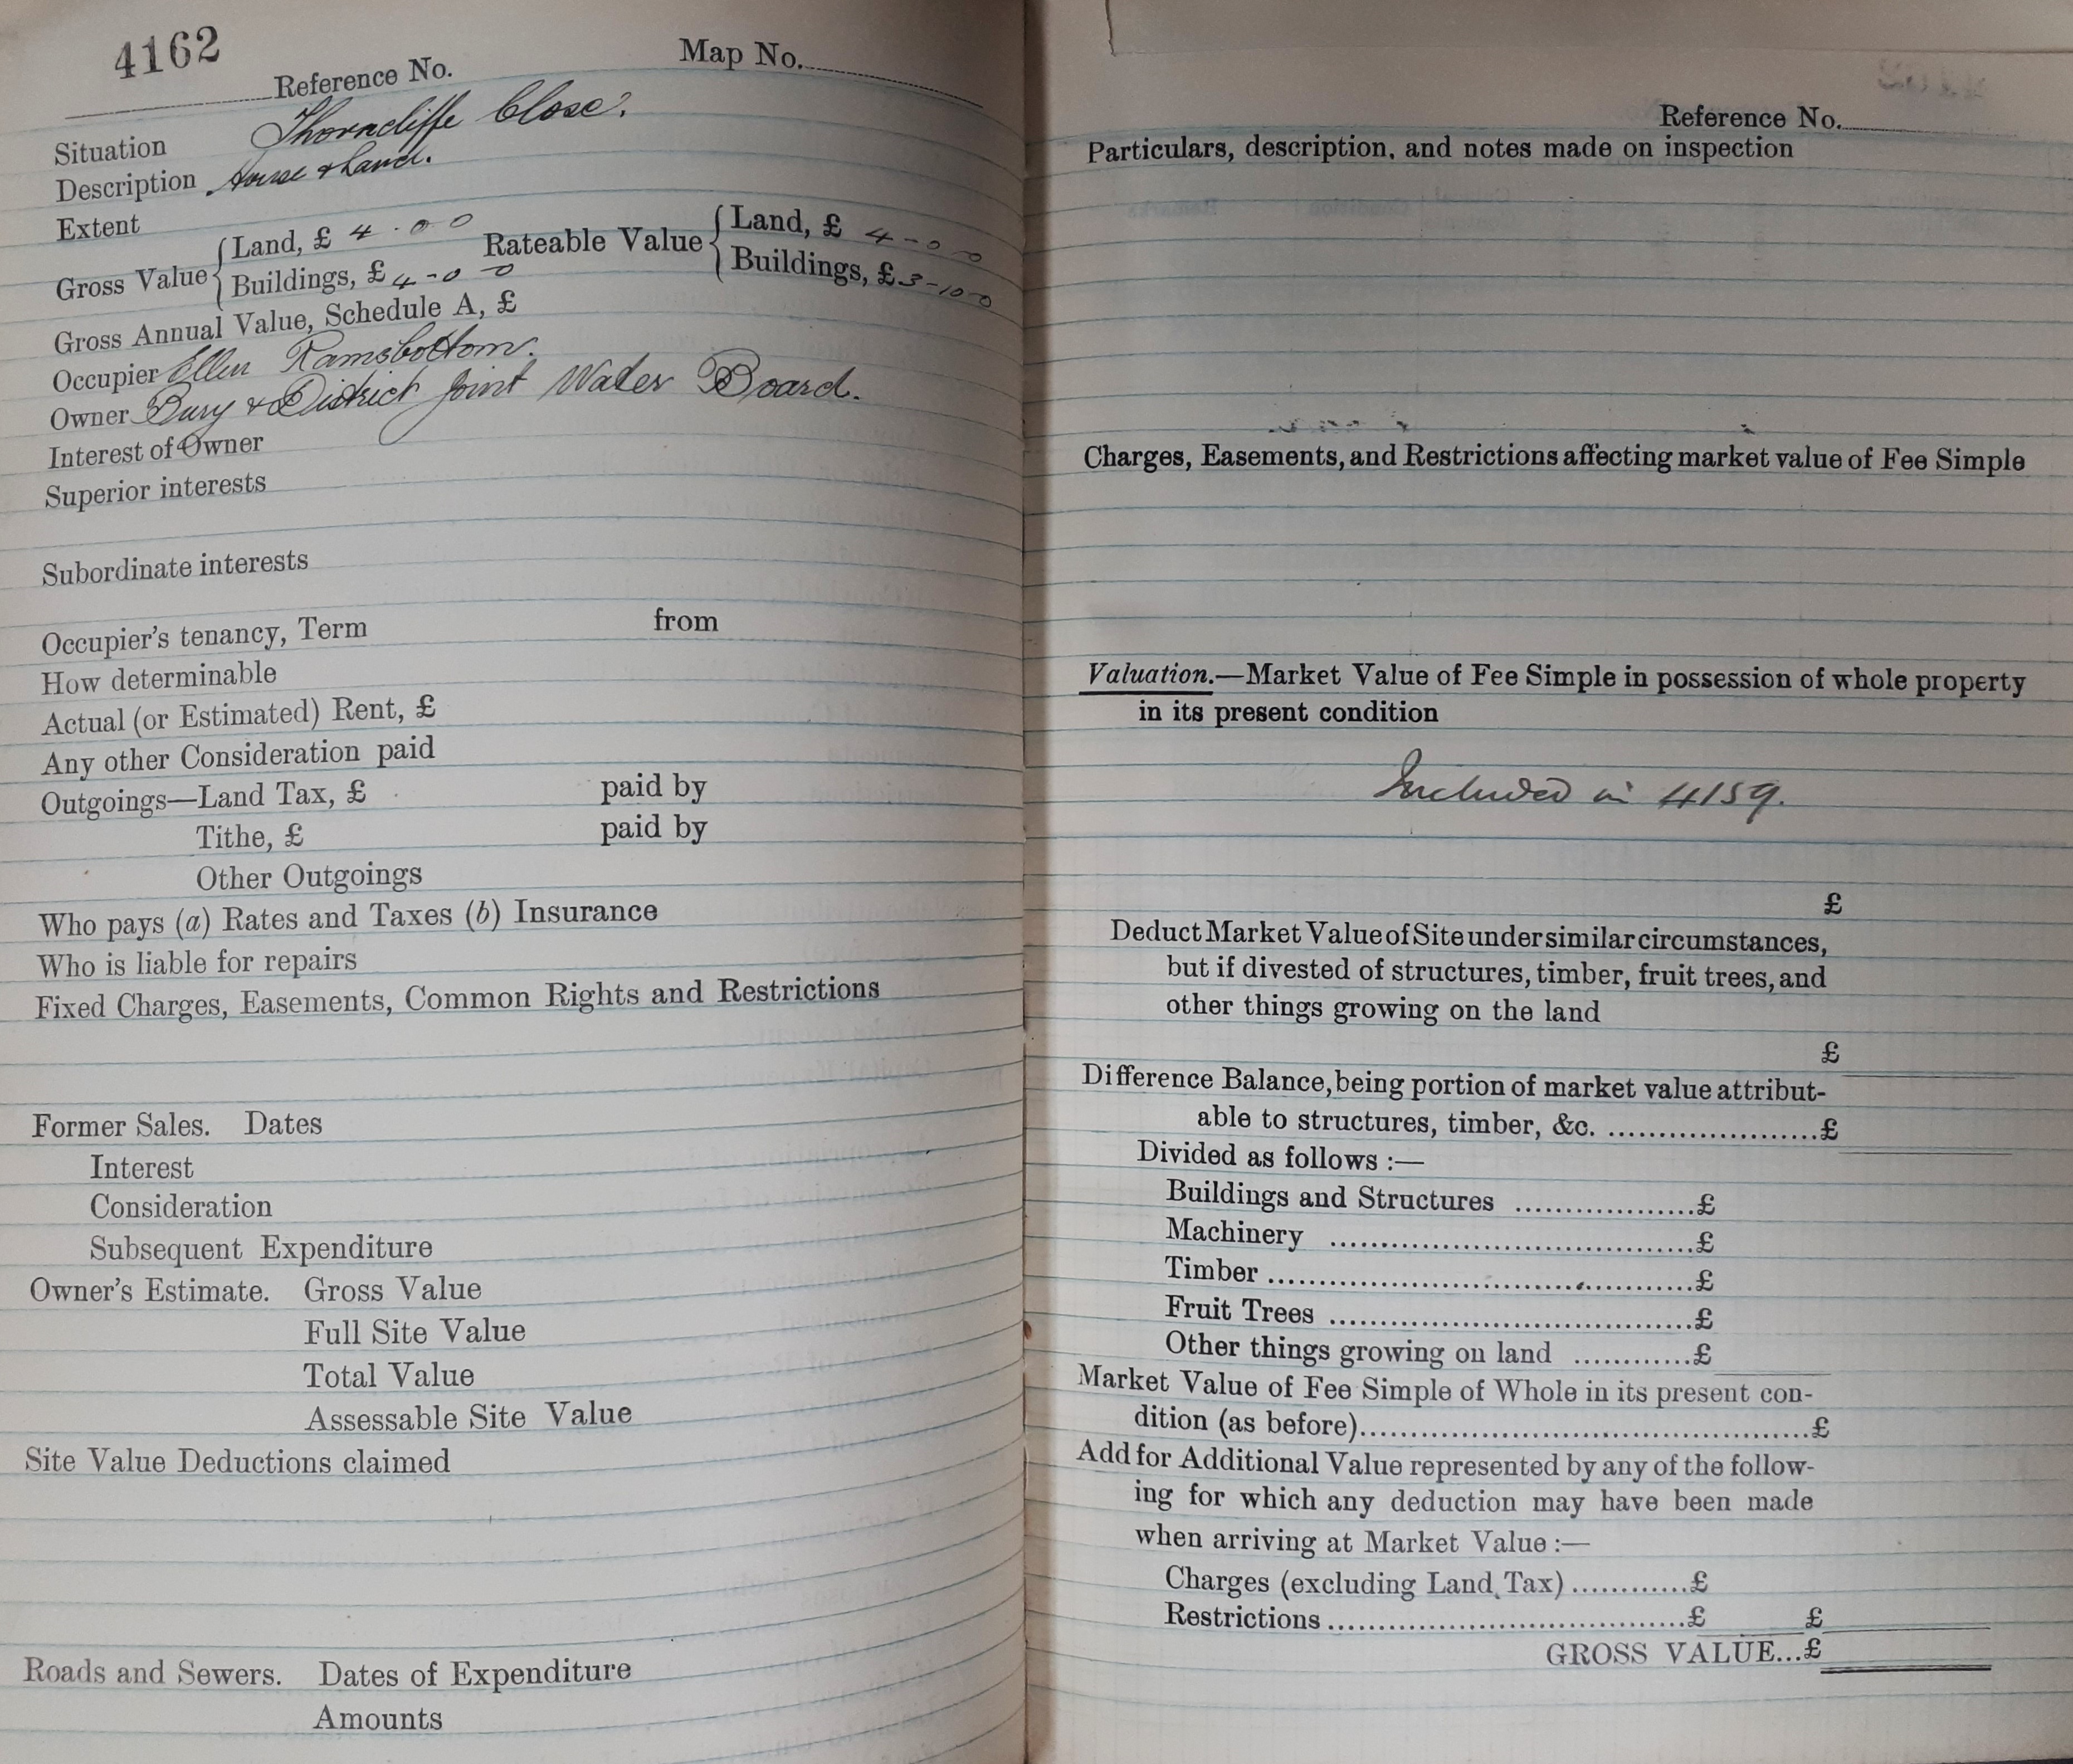 4162
Reference No. Map No.
Situation Thorncliffe Close.
Description House & Land.
Extent
Gross Value { Land, £ 4 . 0 0 Rateable Value { Land, £ 4 - 0 0
Buildings, £ 4 - 0 0 Buildings, £ 3 - 10 - 0
Gross Annual Value, Schedule A, £
Occupier Ellen Ramsbottom.
Owner Bury & District Joint Water Board.
Interest of Owner
Superior interests
Subordinate interests
Occupier's tenancy, Term from
How determinable
Actual (or Estimated) Rent, £
Any other Consideration paid
Outgoings—Land Tax, £ paid by
Tithe, £ paid by
Other Outgoings
Who pays (a) Rates and Taxes (b) Insurance
Who is liable for repairs
Fixed Charges, Easements, Common Rights and Restrictions
Former Sales. Dates
Interest
Consideration
Subsequent Expenditure
Owner's Estimate. Gross Value
Full Site Value
Total Value
Assessable Site Value
Site Value Deductions claimed
Roads and Sewers. Dates of Expenditure
Amounts
Reference No.
Particulars, description, and notes made on inspection
Charges, Easements, and Restrictions affecting market value of Fee Simple
Valuation.—Market Value of Fee Simple in possession of whole property
in its present condition
Included in 4159.
£
Deduct Market Value of Site under similar circumstances,
but if divested of structures, timber, fruit trees, and
other things growing on the land
£
Difference Balance, being portion of market value attribut-
able to structures, timber, &c. ......................£
Divided as follows :—
Buildings and Structures ..................£
Machinery ....................................£
Timber ..........................................£
Fruit Trees ....................................£
Other things growing on land ............£
Market Value of Fee Simple of Whole in its present con-
dition (as before)............................................£
Add for Additional Value represented by any of the follow-
ing for which any deduction may have been made
when arriving at Market Value :—
Charges (excluding Land Tax) ............£
Restrictions ....................................£ £
GROSS VALUE...£